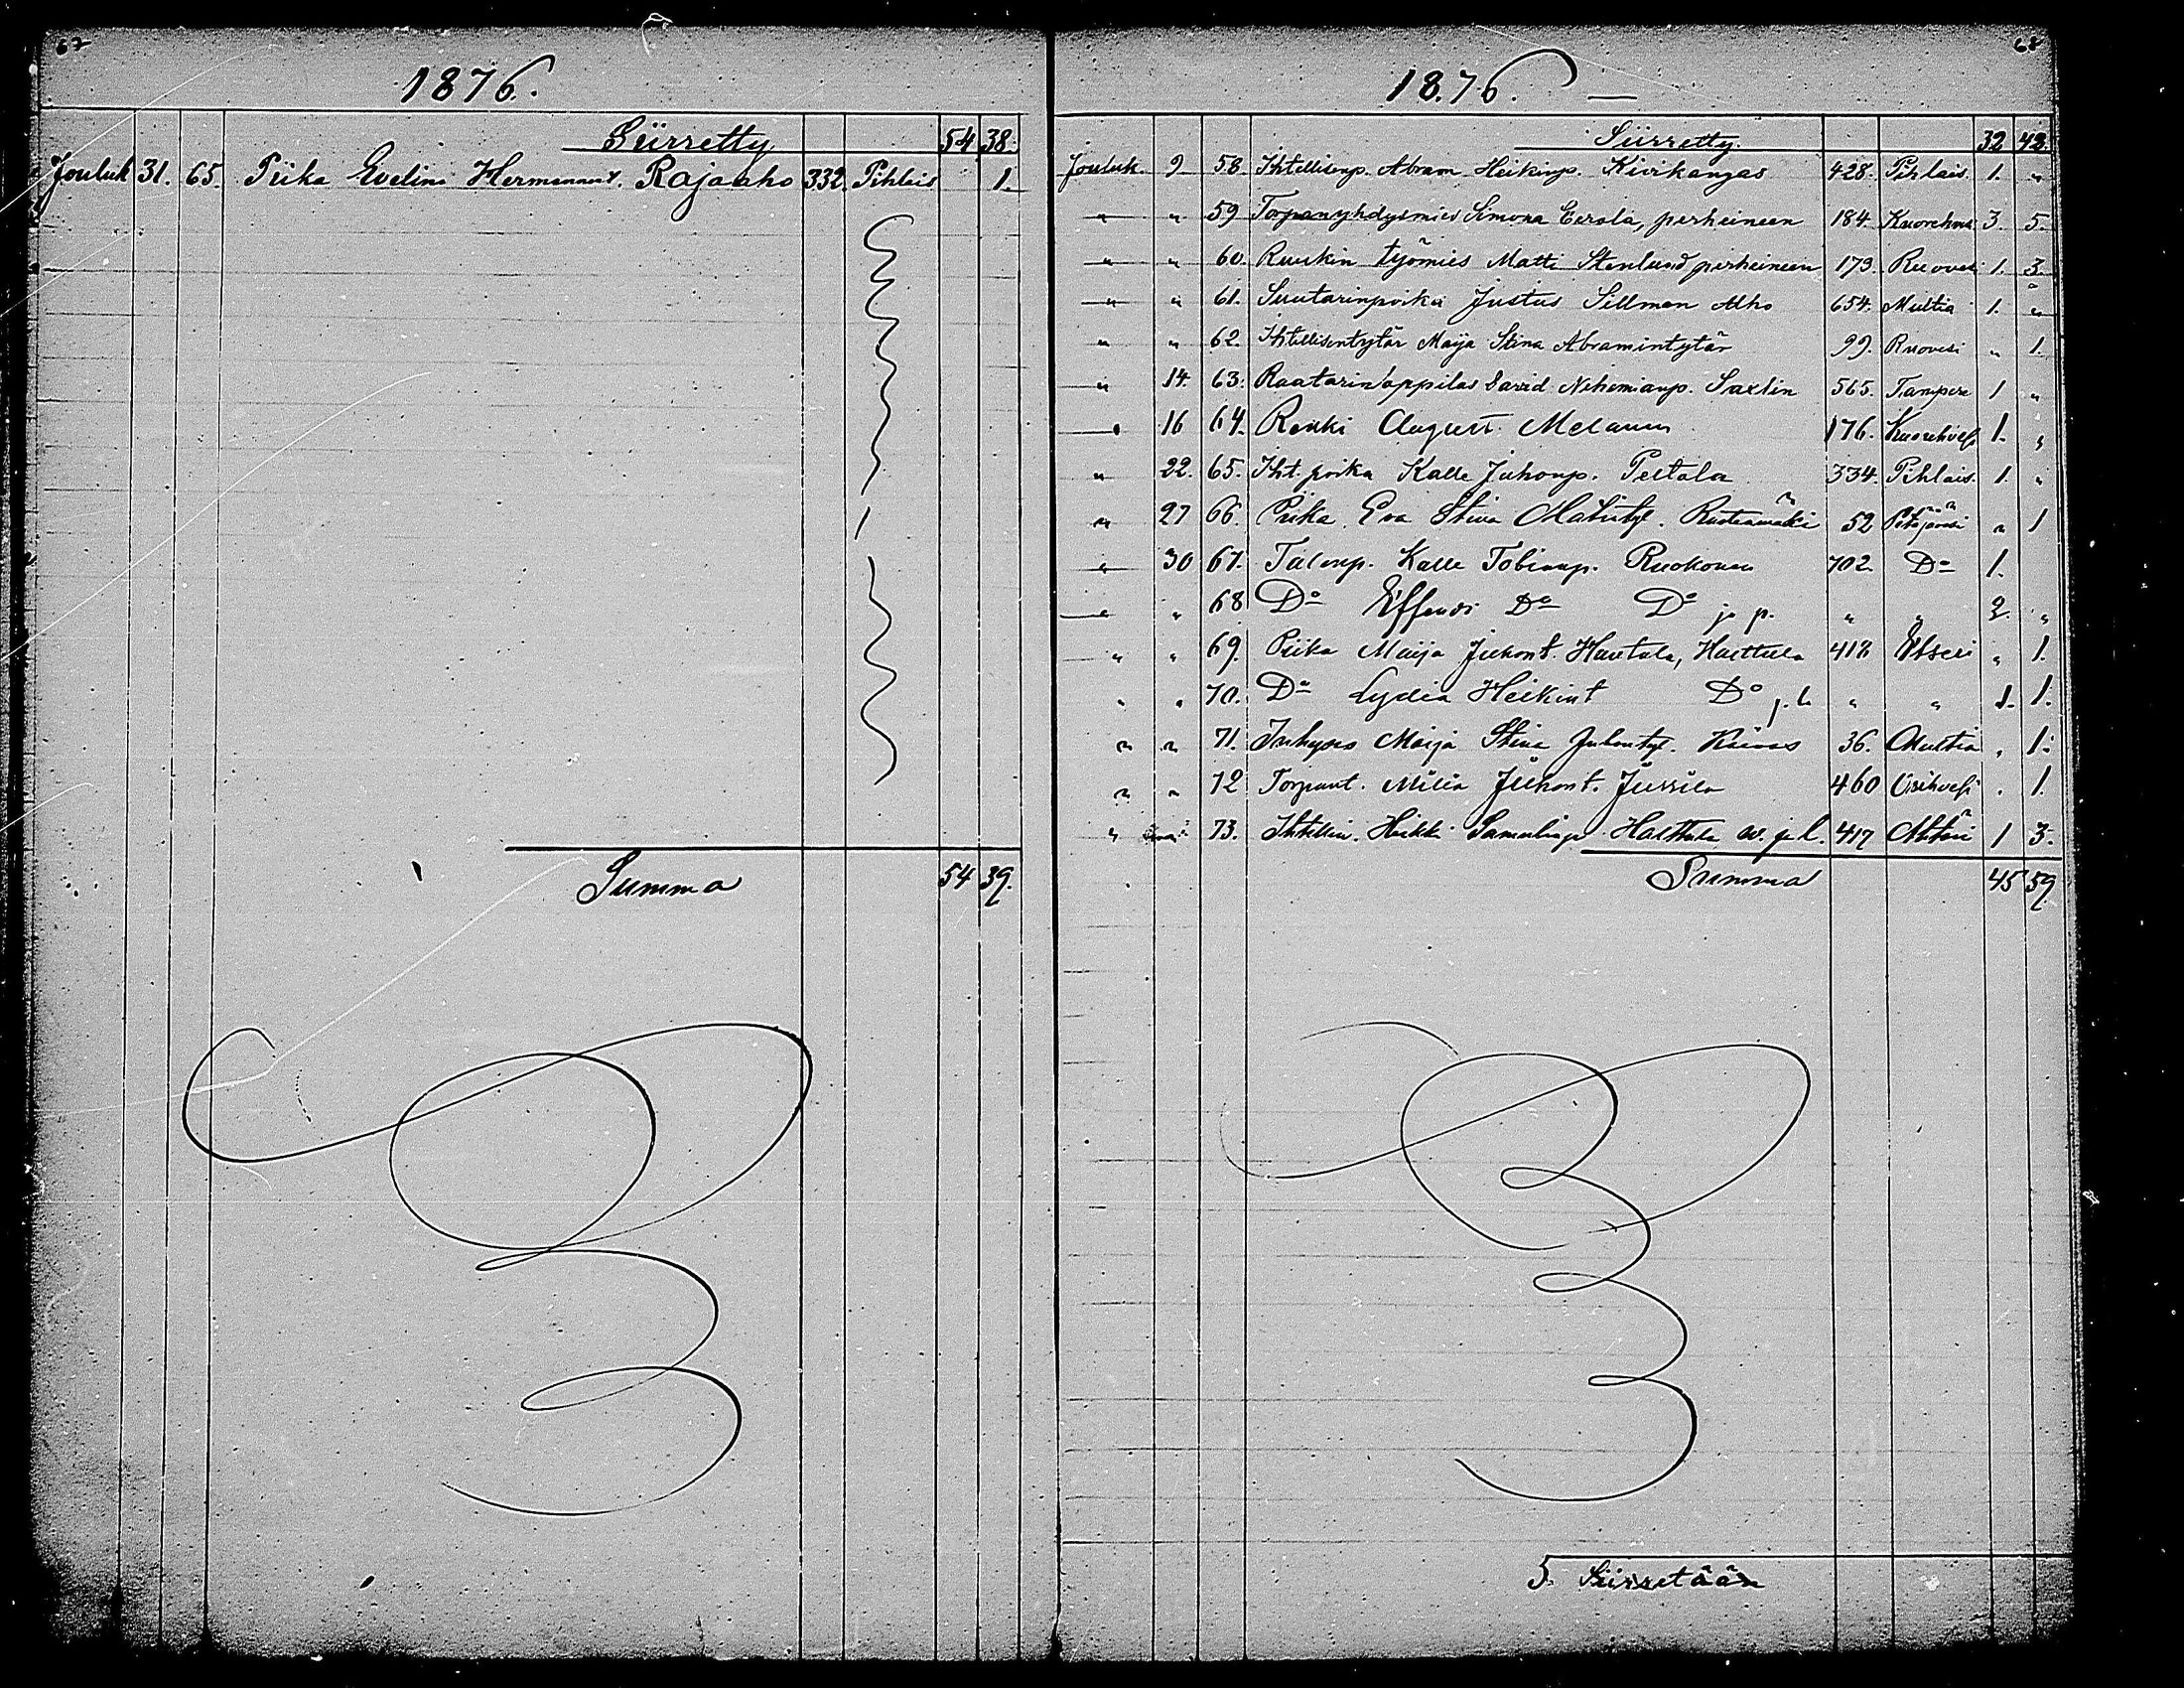 67
1876.
Siirretty 54 38.
Jouluk 31. 65. Piika Evelina Hermannint. Rajaaho 332. Pihlais 1.
Summa 54 39.
68
1876.
Siirretty. 32 43.
Jouluk. 9 58 Ihtellisenp. Abram Heikinp. Kivikangas 428. Pihlais. 1. "
" " 59 Torpanyhdysmies Simona Eerola, perheineen 184. Kuorehvesi 3. 5.
" " 60. Ruukin työmies Matti Stenlund perheineen 173. Ruovesi 1. 3.
" " 61. Suutarinpoika Justus Sillman Alho 654. Multia 1. "
" " 62. Ihtellisentytär Maija Stina Abramintytär 99. Ruovesi " 1.
" 14. 63. Raatarin oppilas David Nehemianp. Saxlin 565. Tampere 1 "
" 16 64. Renki August 176. Kuorehvesi 1. "
" 22. 65. Iht. poika Kalle Juhonp. Peltola 334. Pihlais. 1. "
" 27 66. Piika Eva Stina Matintyt. 52 Petäjävesi " 1
" 30 67. Talonp. Kalle Tobianp. Ruokonen 702. Do 1.
" " 68 Do Do Do ja p. " " 2. "
" " 69. Piika Maija Juhont. Hautala, Haettula 418 Etseri " 1.
" " 70. Do Lydia Heikint Do j. l. " " 1. 1.
" " 71. Maija Stina Juhontyt. 36. Multia " 1.
" " 72 Torpant. Milia Juhont. Jussila 460 . 1.
" " 73. Ihtellin. Heikki Samulinp. Haettula w. j. l. 417 Ähtäri 1 3.
Summa 45 59.
S. Siirretään